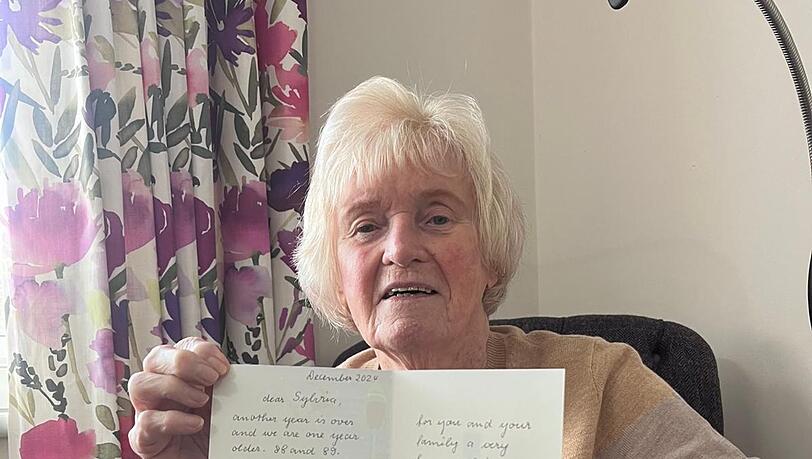 December 2024
dear Sylvia,
another year is over
and we are one year
older. 88 and 89.
for you and your
family a very